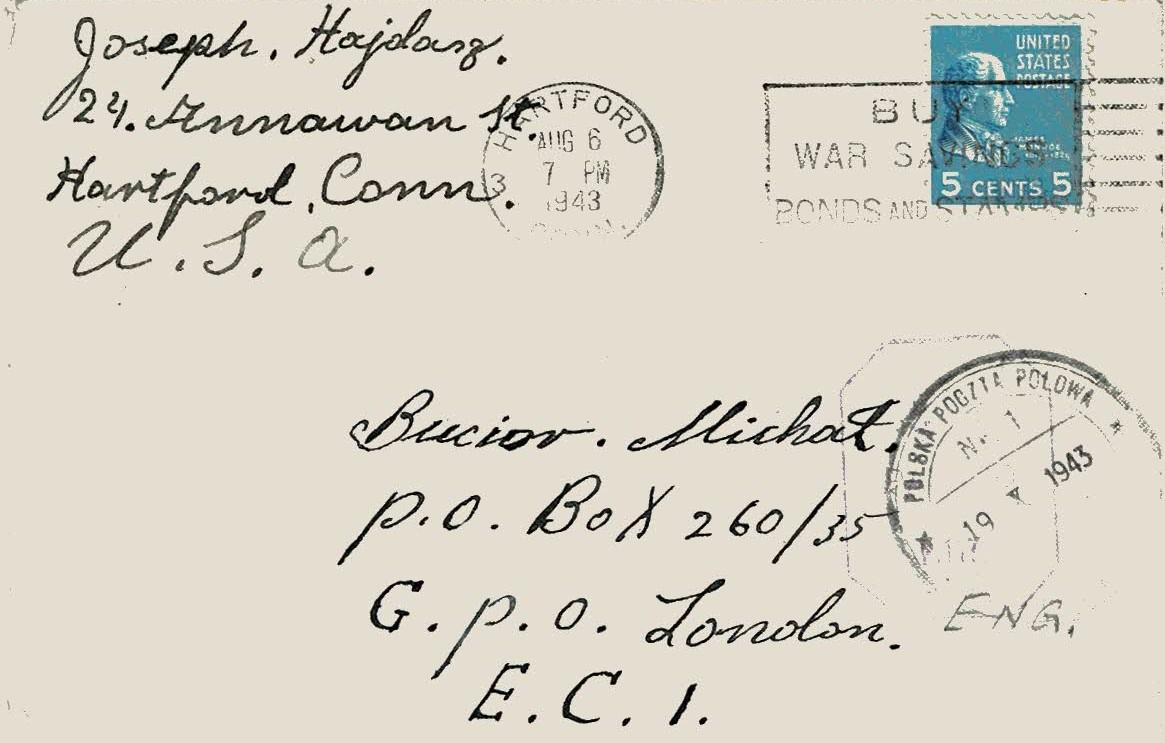 Joseph. Hajdasz.
24. Annawan St.
Hartford, Conn.
U.S.A.
HARTFORD
AUG 6
7 PM
1943
3
UNITED
STATES
POSTAGE
5 CENTS 5
BUY
WAR SAVINGS
BONDS AND STAMPS
POLSKA POCZTA POLOWA
Nr. 1
19 X 1943
Bucior. Michał.
P.O. BoX 260/35
G.P.O. London.
ENG.
E.C.1.